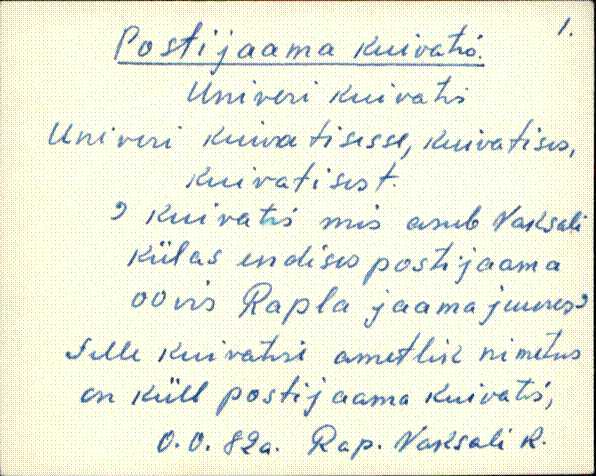 1.
Postijaama kuivatis.
Univeri kuivatis
Univeri kuivatisesse, kuivatises,
kuivatisest.
? kuivatis mis asub Vaksali
külas endises postijaama
oovis Rapla jaama juures?
Selle kuivatisi ametlik nimetus
on küll postijaama kuivatis,
O.O. 82a. Rap. Vaksali k.